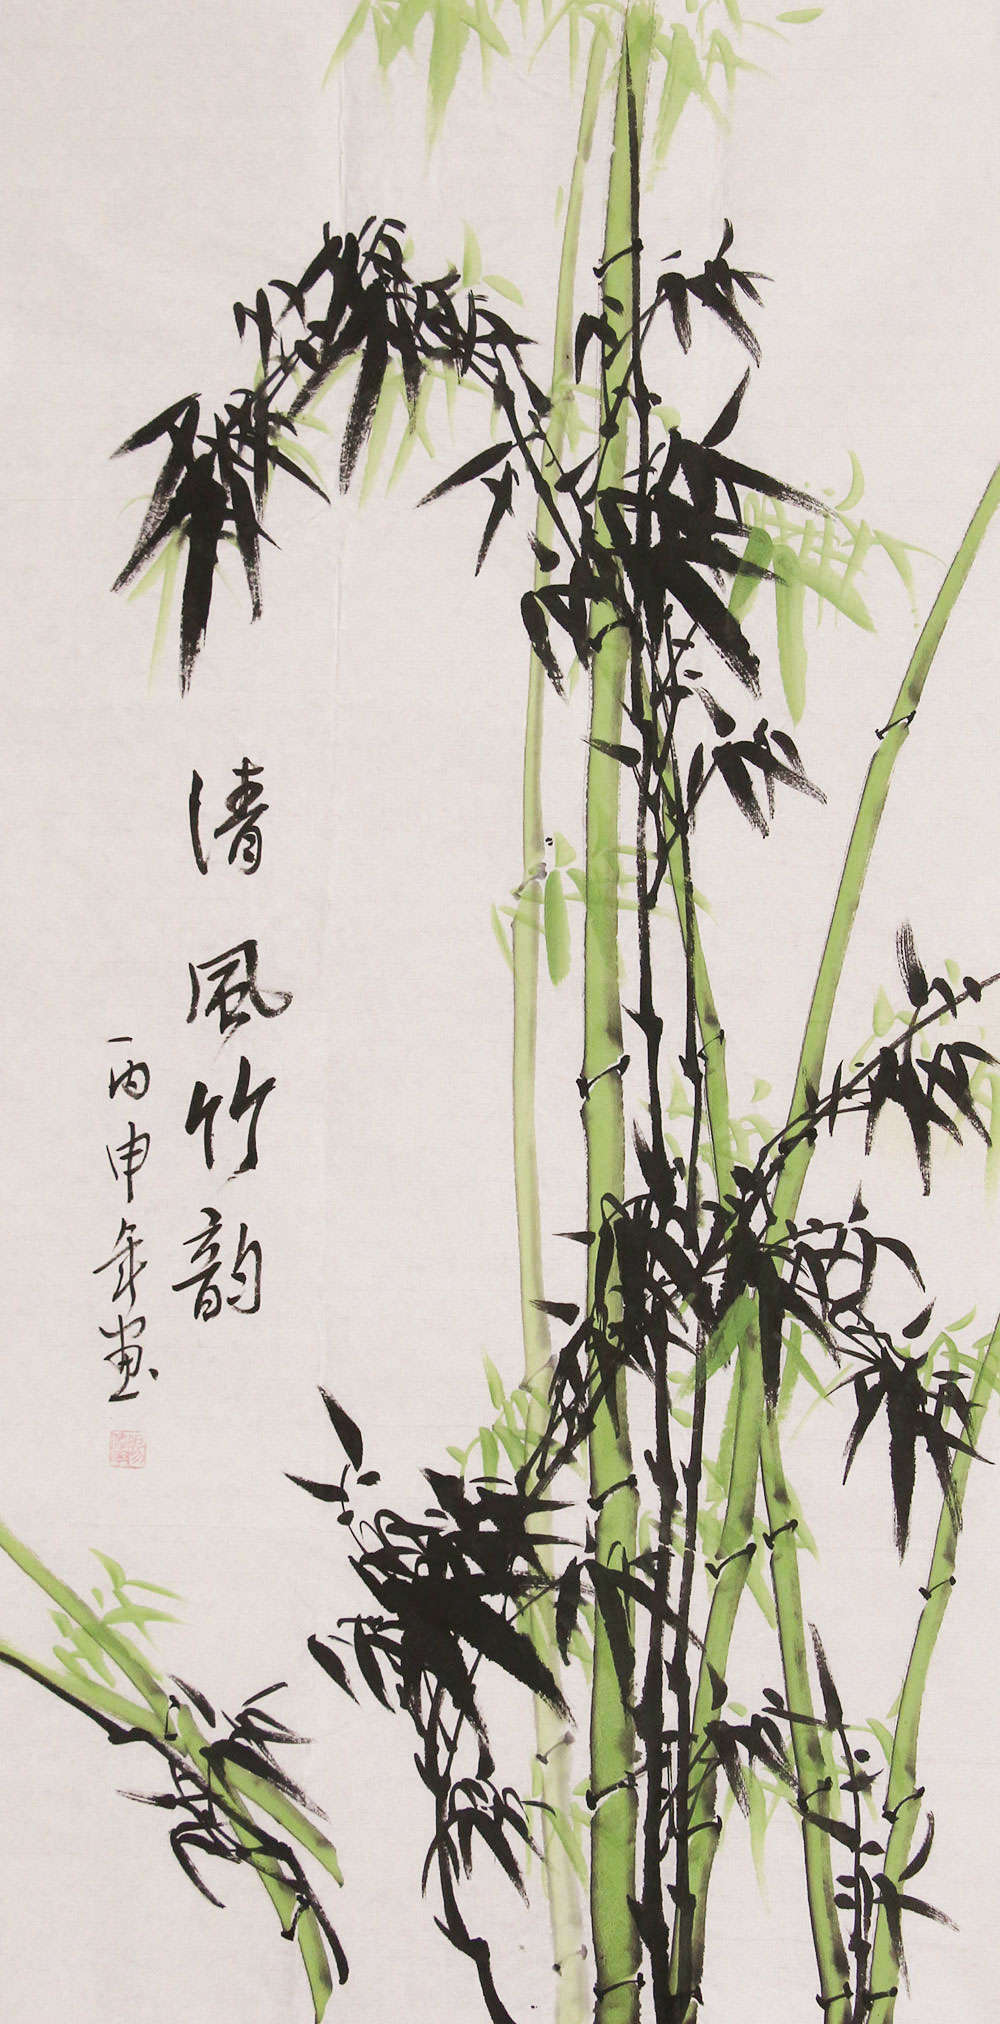 清風竹韵
丙申年画